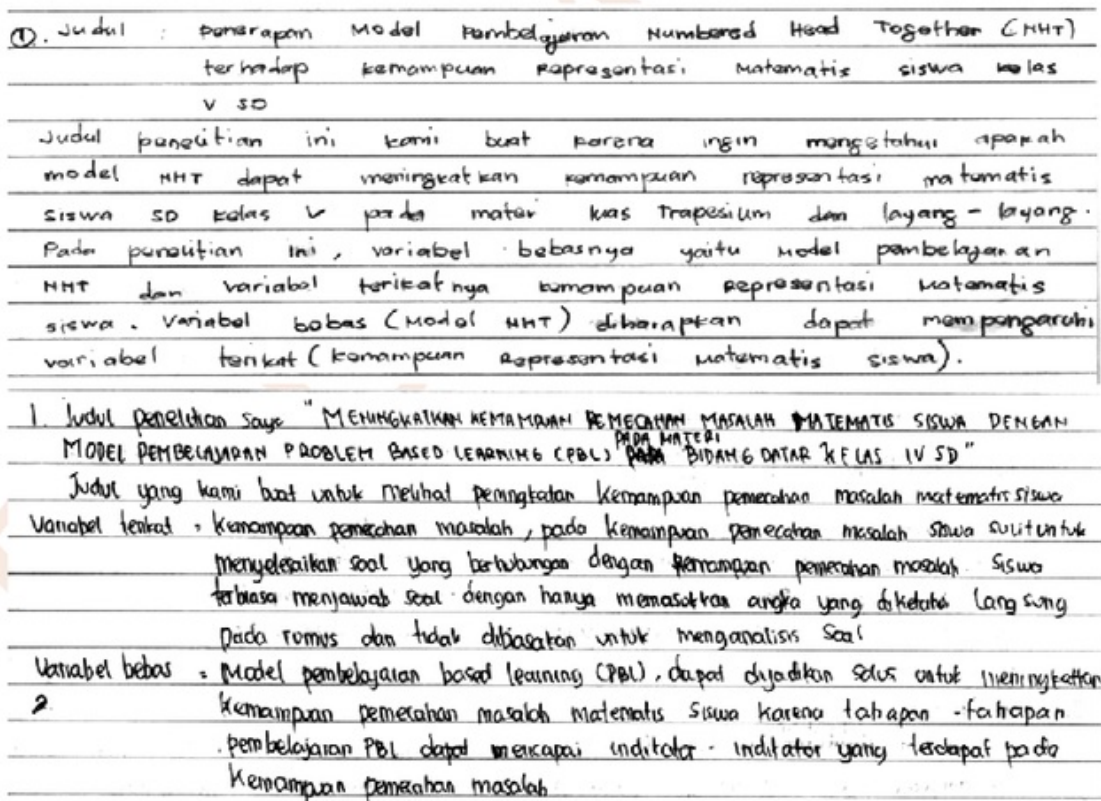 ①. Judul : Penerapan Model Pembelajaran Numbered Head Together (NHT)
terhadap kemampuan Representasi Matematis siswa kelas
V SD
Judul penelitian ini kami buat karena ingin mengetahui apakah
model NHT dapat meningkatkan kemampuan representasi matematis
siswa SD kelas V pada materi luas Trapesium dan layang - layang.
Pada penelitian ini, variabel bebasnya yaitu Model pembelajaran
NHT dan variabel terikatnya kemampuan Representasi Matematis
siswa. Variabel bebas (Model NHT) diharapkan dapat mempengaruhi
variabel terikat (Kemampuan Representasi Matematis siswa).
1. Judul penelitian saya "MENINGKATKAN KEMAMPUAN PEMECAHAN MASALAH MATEMATIS SISWA DENGAN
MODEL PEMBELAJARAN PROBLEM BASED LEARNING (PBL) PADA MATERI BIDANG DATAR KELAS IV SD"
Judul yang kami buat untuk melihat peningkatan kemampuan pemecahan masalah matematis siswa
Variabel terikat = Kemampuan pemecahan masalah, pada kemampuan pemecahan masalah siswa sulit untuk
menyelesaikan soal yang berhubungan dengan kemampuan pemecahan masalah. Siswa
terbiasa menjawab soal dengan hanya memasukkan angka yang diketahui langsung
pada rumus dan tidak dibiasakan untuk menganalisis soal
Variabel bebas = Model pembelajaran based learning (PBL), dapat dijadikan solusi untuk meningkatkan
2 kemampuan pemecahan masalah matematis siswa karena tahapan - tahapan
pembelajaran PBL dapat mencapai indikator - indikator yang terdapat pada
kemampuan pemecahan masalah